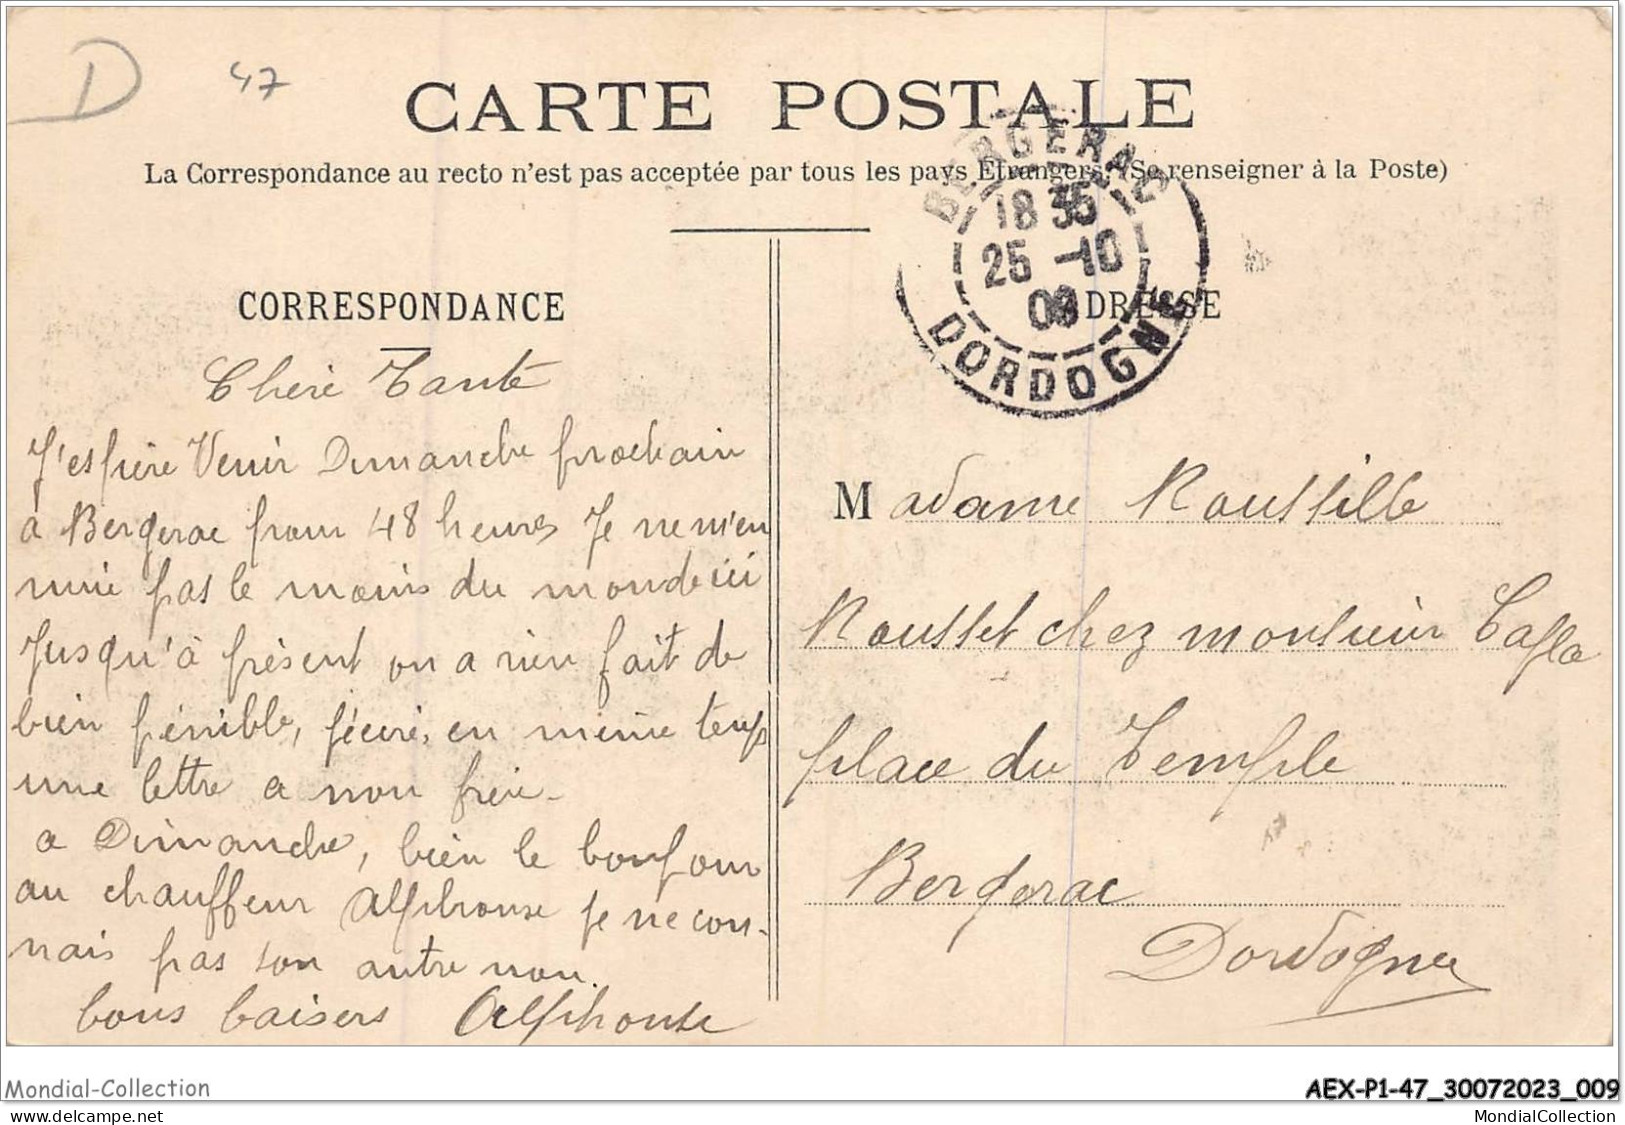 D 47
CARTE POSTALE
La Correspondance au recto n'est pas acceptée par tous les pays Étrangers. (Se renseigner à la Poste)
BERGERAC
18 35
25 -10
09
DORDOGNE
CORRESPONDANCE
Chère Tante
J'espère Venir Dimanche prochain
a Bergerac pour 48 heures Je ne m'en
nuie pas le moins du monde ici
Jusqu'à présent on a rien fait de
bien pénible, j'ecrie, en même temps
une lettre a mon frère.
a Dimanche, bien le bonjour
au chauffeur Alphonse je ne con-
nais pas son autre nom.
bons baisers Alphonse
ADRESSE
Madame Roussille
Rousset chez monsieur
place du Temple
Bergerac
Dordogne
Mondial-Collection
AEX-P1-47_30072023_009
www.delcampe.net
MondialCollection